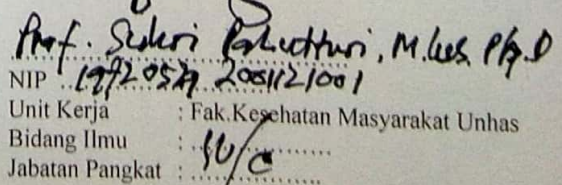 Prof. Sukri Palutturi, M.Kes. Ph.D
NIP . 19720529 2001121001
Unit Kerja : Fak.Kesehatan Masyarakat Unhas
Bidang Ilmu :
Jabatan Pangkat : IV/c